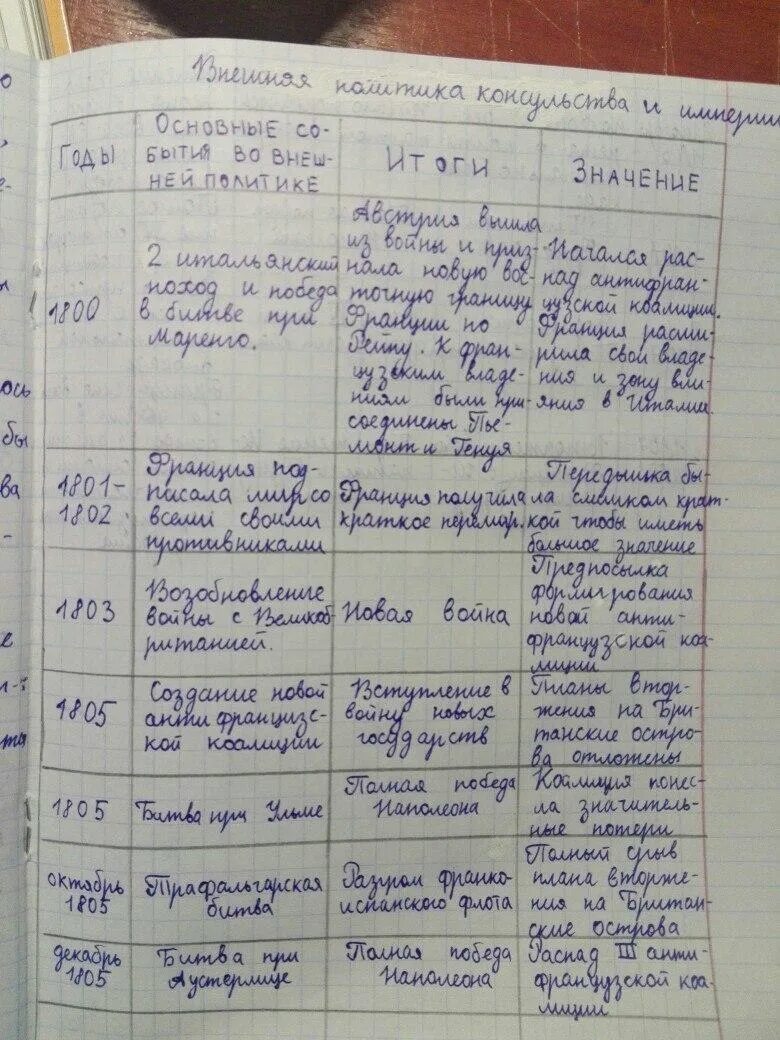 Внешняя политика консульства и империи
ГОДЫ
ОСНОВНЫЕ СО-
БЫТИЯ ВО ВНЕШ-
НЕЙ ПОЛИТИКЕ
ИТОГИ
ЗНАЧЕНИЕ
1800
2 итальянский
поход и победа
в битве при
Маренго.
Австрия вышла
из войны и приз-
нала новую вос-
точную границу
Франции по
Рейну. К фран-
цузским владе-
ниям были при-
соединены Пье-
монт и Генуя
Начался рас-
пад антифран-
цузской коалиции.
Франция расши-
рила свои владе-
ния и зону вли-
яния в Италии.
1801-
1802
Франция под-
писала мир со
всеми своими
противниками
Франция получила
краткое перемир.
Передышка бы-
ла слишком крат-
кой чтобы иметь
большое значение
1803
Возобновление
войны с Великоб-
ританией.
Новая война
Предпосылка
формирования
новой анти-
французской коа-
лиции
1805
Создание новой
антифранцизс-
кой коалиции
Вступление в
войну новых
государств
Планы втор-
жения на Бри-
танские остро-
ва отложены
1805
Битва при Ульме
Полная победа
Наполеона
Коалиция понес-
ла значитель-
ные потери
октябрь
1805
Трафальгарская
битва
Разгром франко-
испанского флота
Полный срыв
плана вторже-
ния на Британ-
ские острова
декабрь
1805
Битва при
Аустерлице
Полная победа
Наполеона
Распад III анти-
французской коа-
лиции